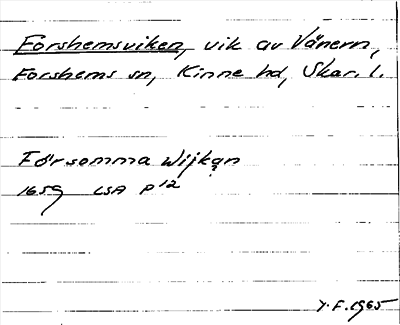 Forshemsviken, vik av Vänern,
Forshems sn, Kinne hd, Skar. l.
Försomma Wijkan
1659 LSA P 12
Y.F. 1965